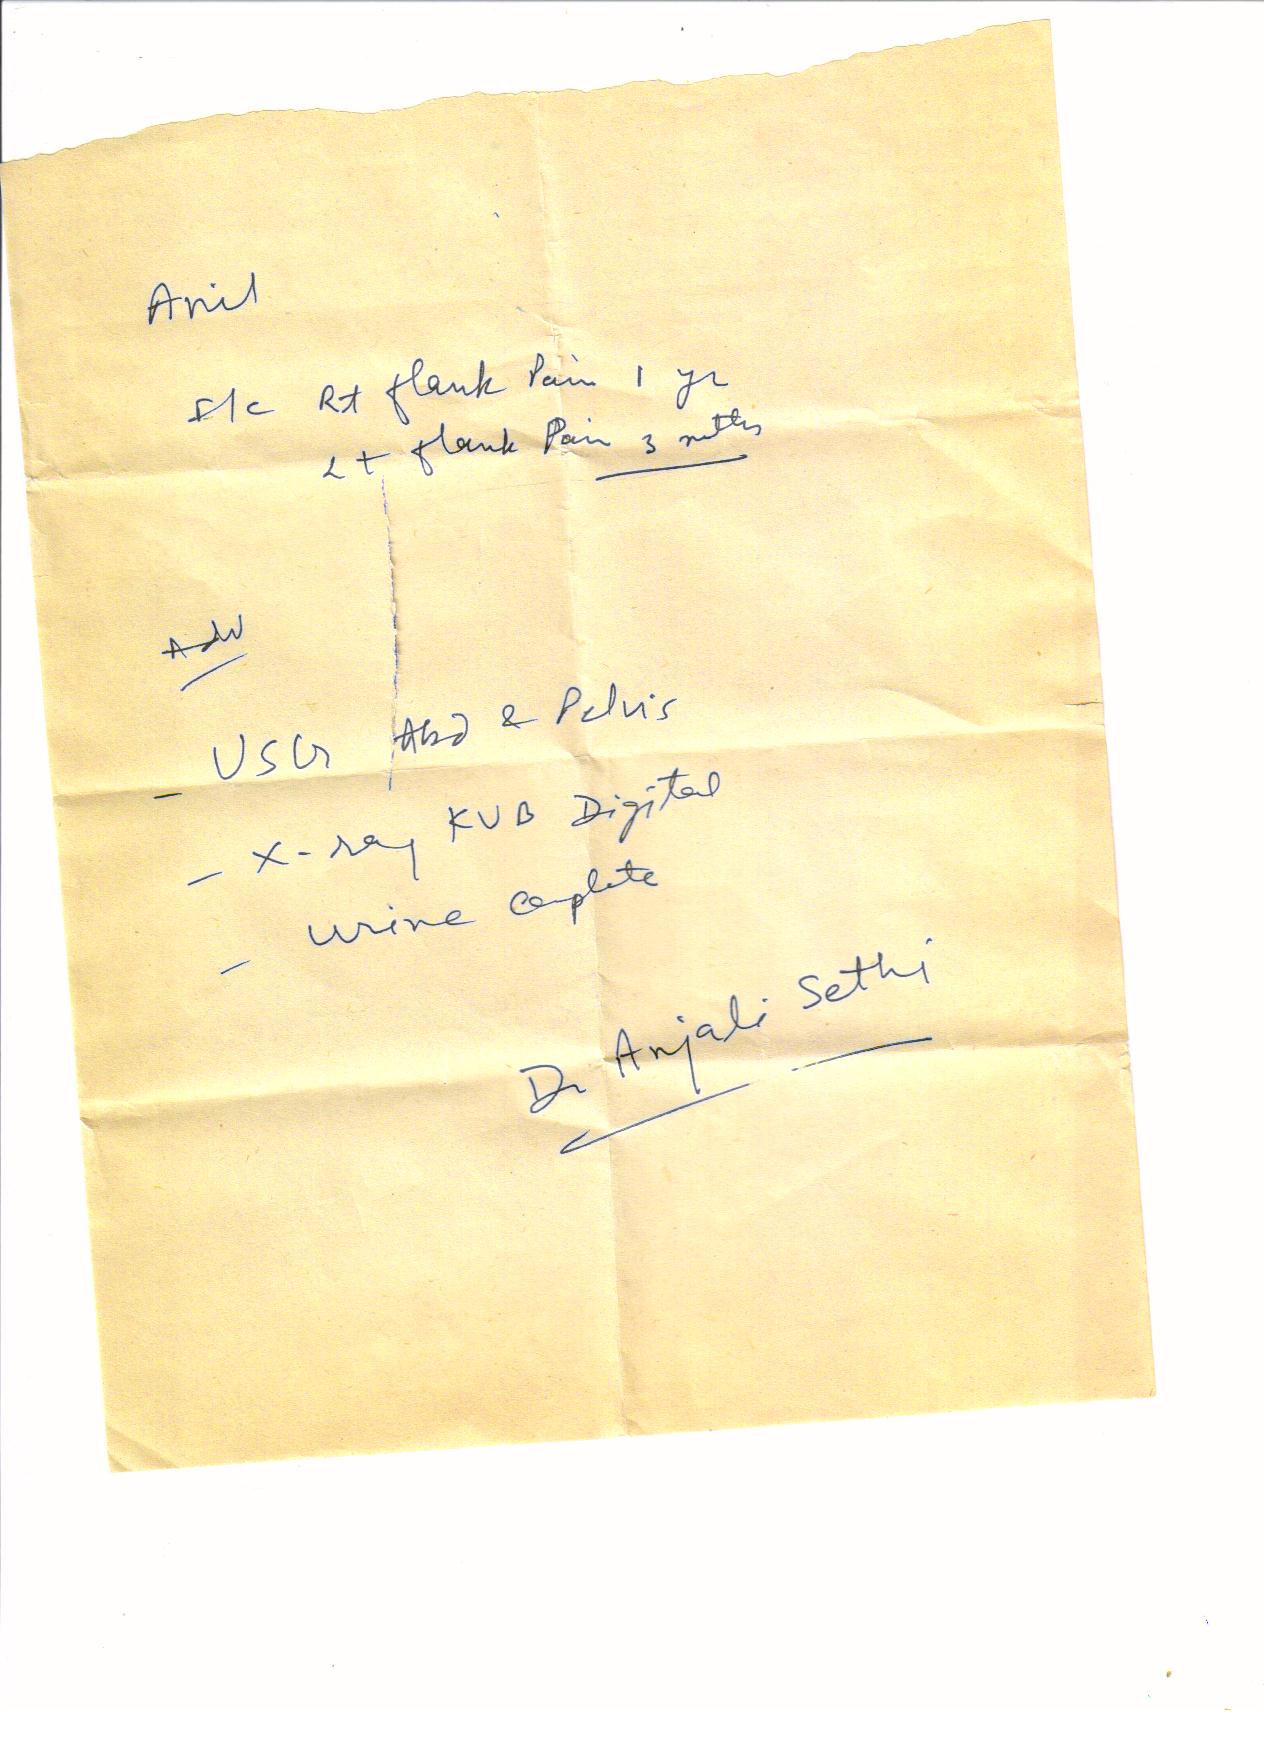 Anil
S/c Rt flank Pain 1 yr
Lt flank Pain 3 mths
Adv
- USG Abd & Pelvis
- X-ray KUB Digital
- Urine Complete
Dr Anjali Sethi